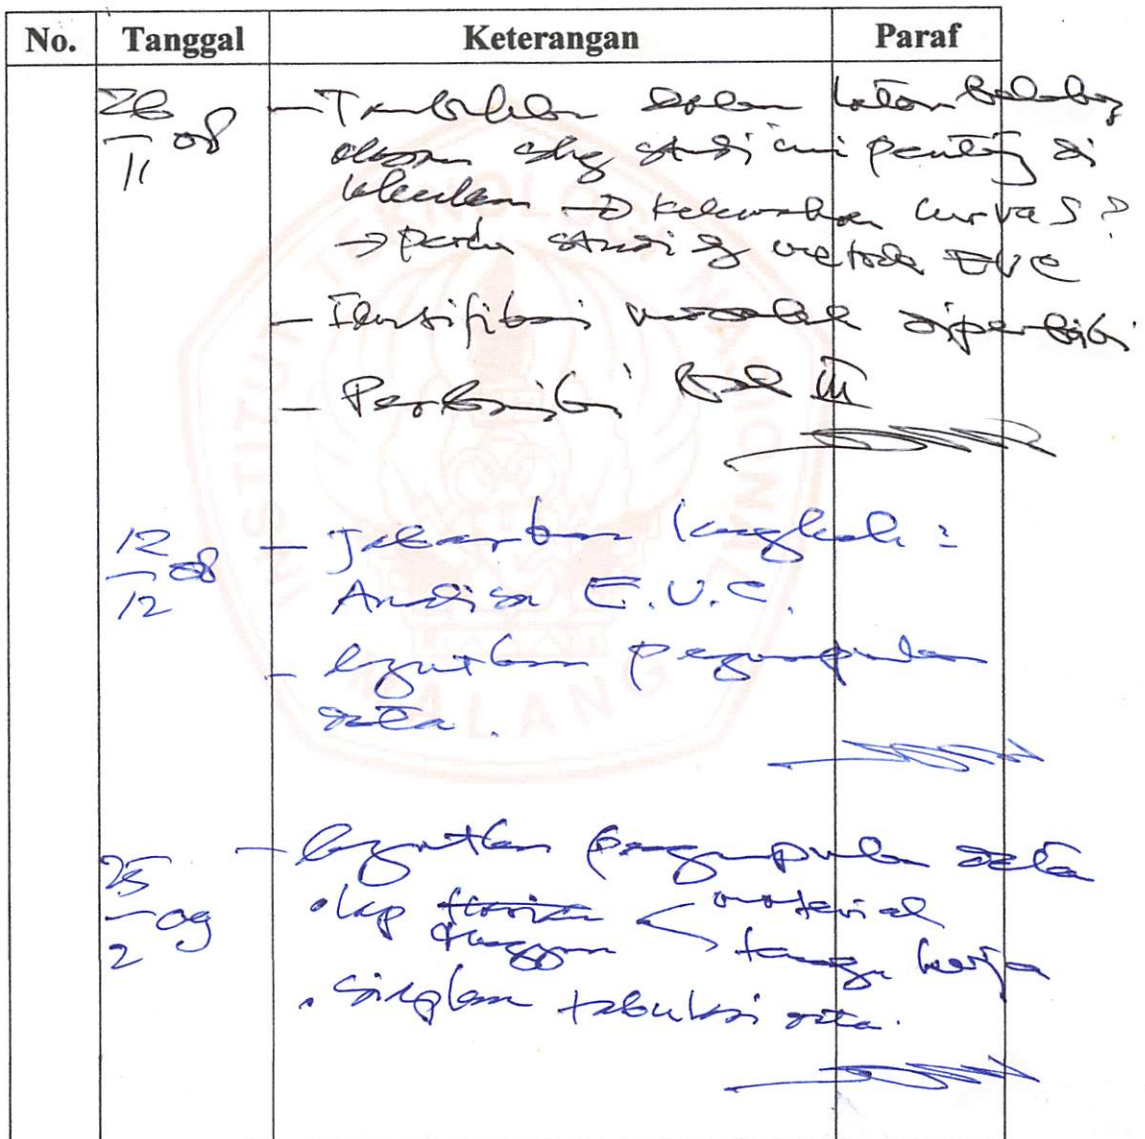 No. Tanggal Keterangan Paraf
26/11 08 - Tambahkan dalam latar belakang
alasan shg studi ini penting di
lakukan → kelemahan curva S ?
→ perlu studi dg metode EVC
- Identifikasi masalah diperbaiki
- Perbaiki Bab III
12/12 08 - Jabarkan langkah :
Analisa E.V.C.
- lanjutkan pengumpulan
data.
25/2 09 - lanjutkan pengumpulan data
• lap material
tenaga kerja
• Siapkan tabulasi data.
INSTITUT TEKNOLOGI NASIONAL
MALANG